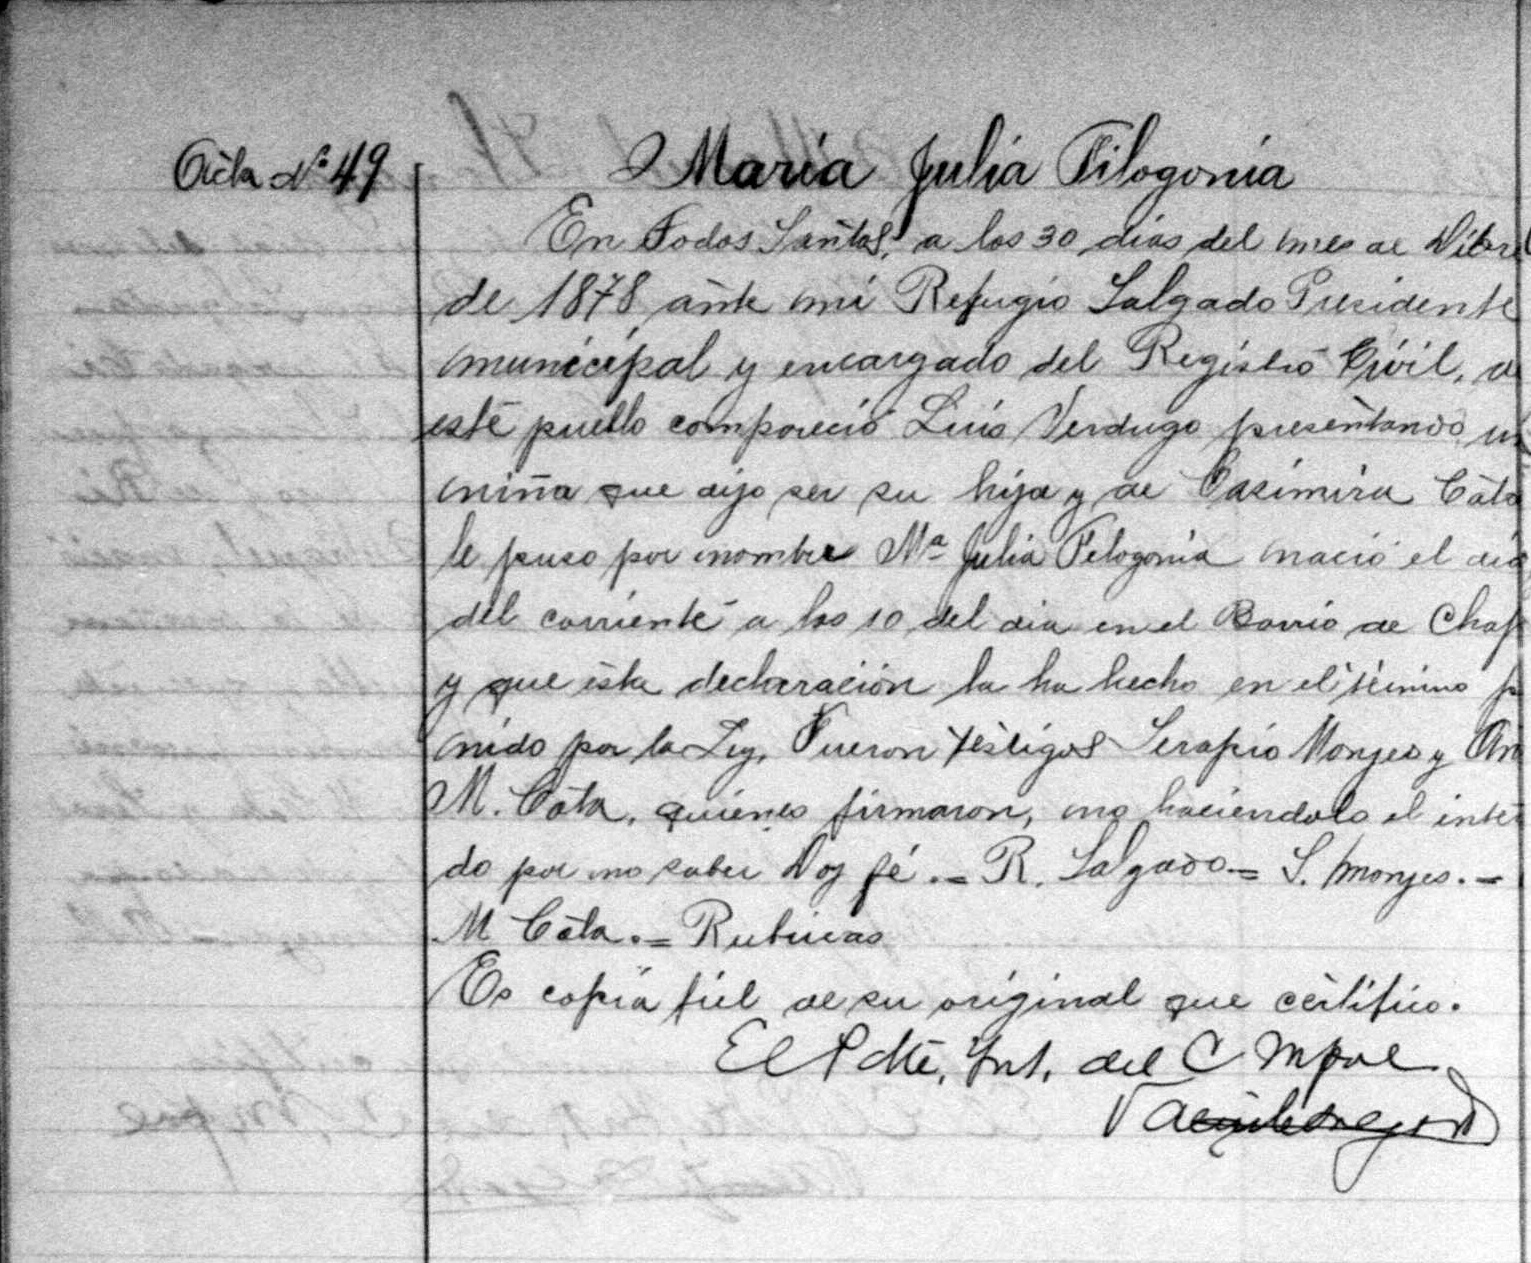 Acta N° 49
María Julia Filogonia
En Todos Santos, a los 30 dias del mes de Dibre
de 1878 ante mi Refugio Salgado Presidente
municipal y encargado del Registro Civil, de
este pueblo compareció Luis Verdugo presentando un
niña que dijo ser su hija y de Casimira Cota
le puso por nombre Mª Julia Filogonia nació el dia
del corriente a las 10 del dia en el Barrio de Chap
y que esta declaración la ha hecho en el término p
nido por la Ley. Fueron testigos Serapio Monjes y
M. Cota, quienes firmaron, no haciendolo el inter
do por no saber Doy fé.= R. Salgado = S. Monjes. =
M Cota.= Rubricas
Es copia fiel de su original que certifico.
El Pdte. Int. del C Mpal